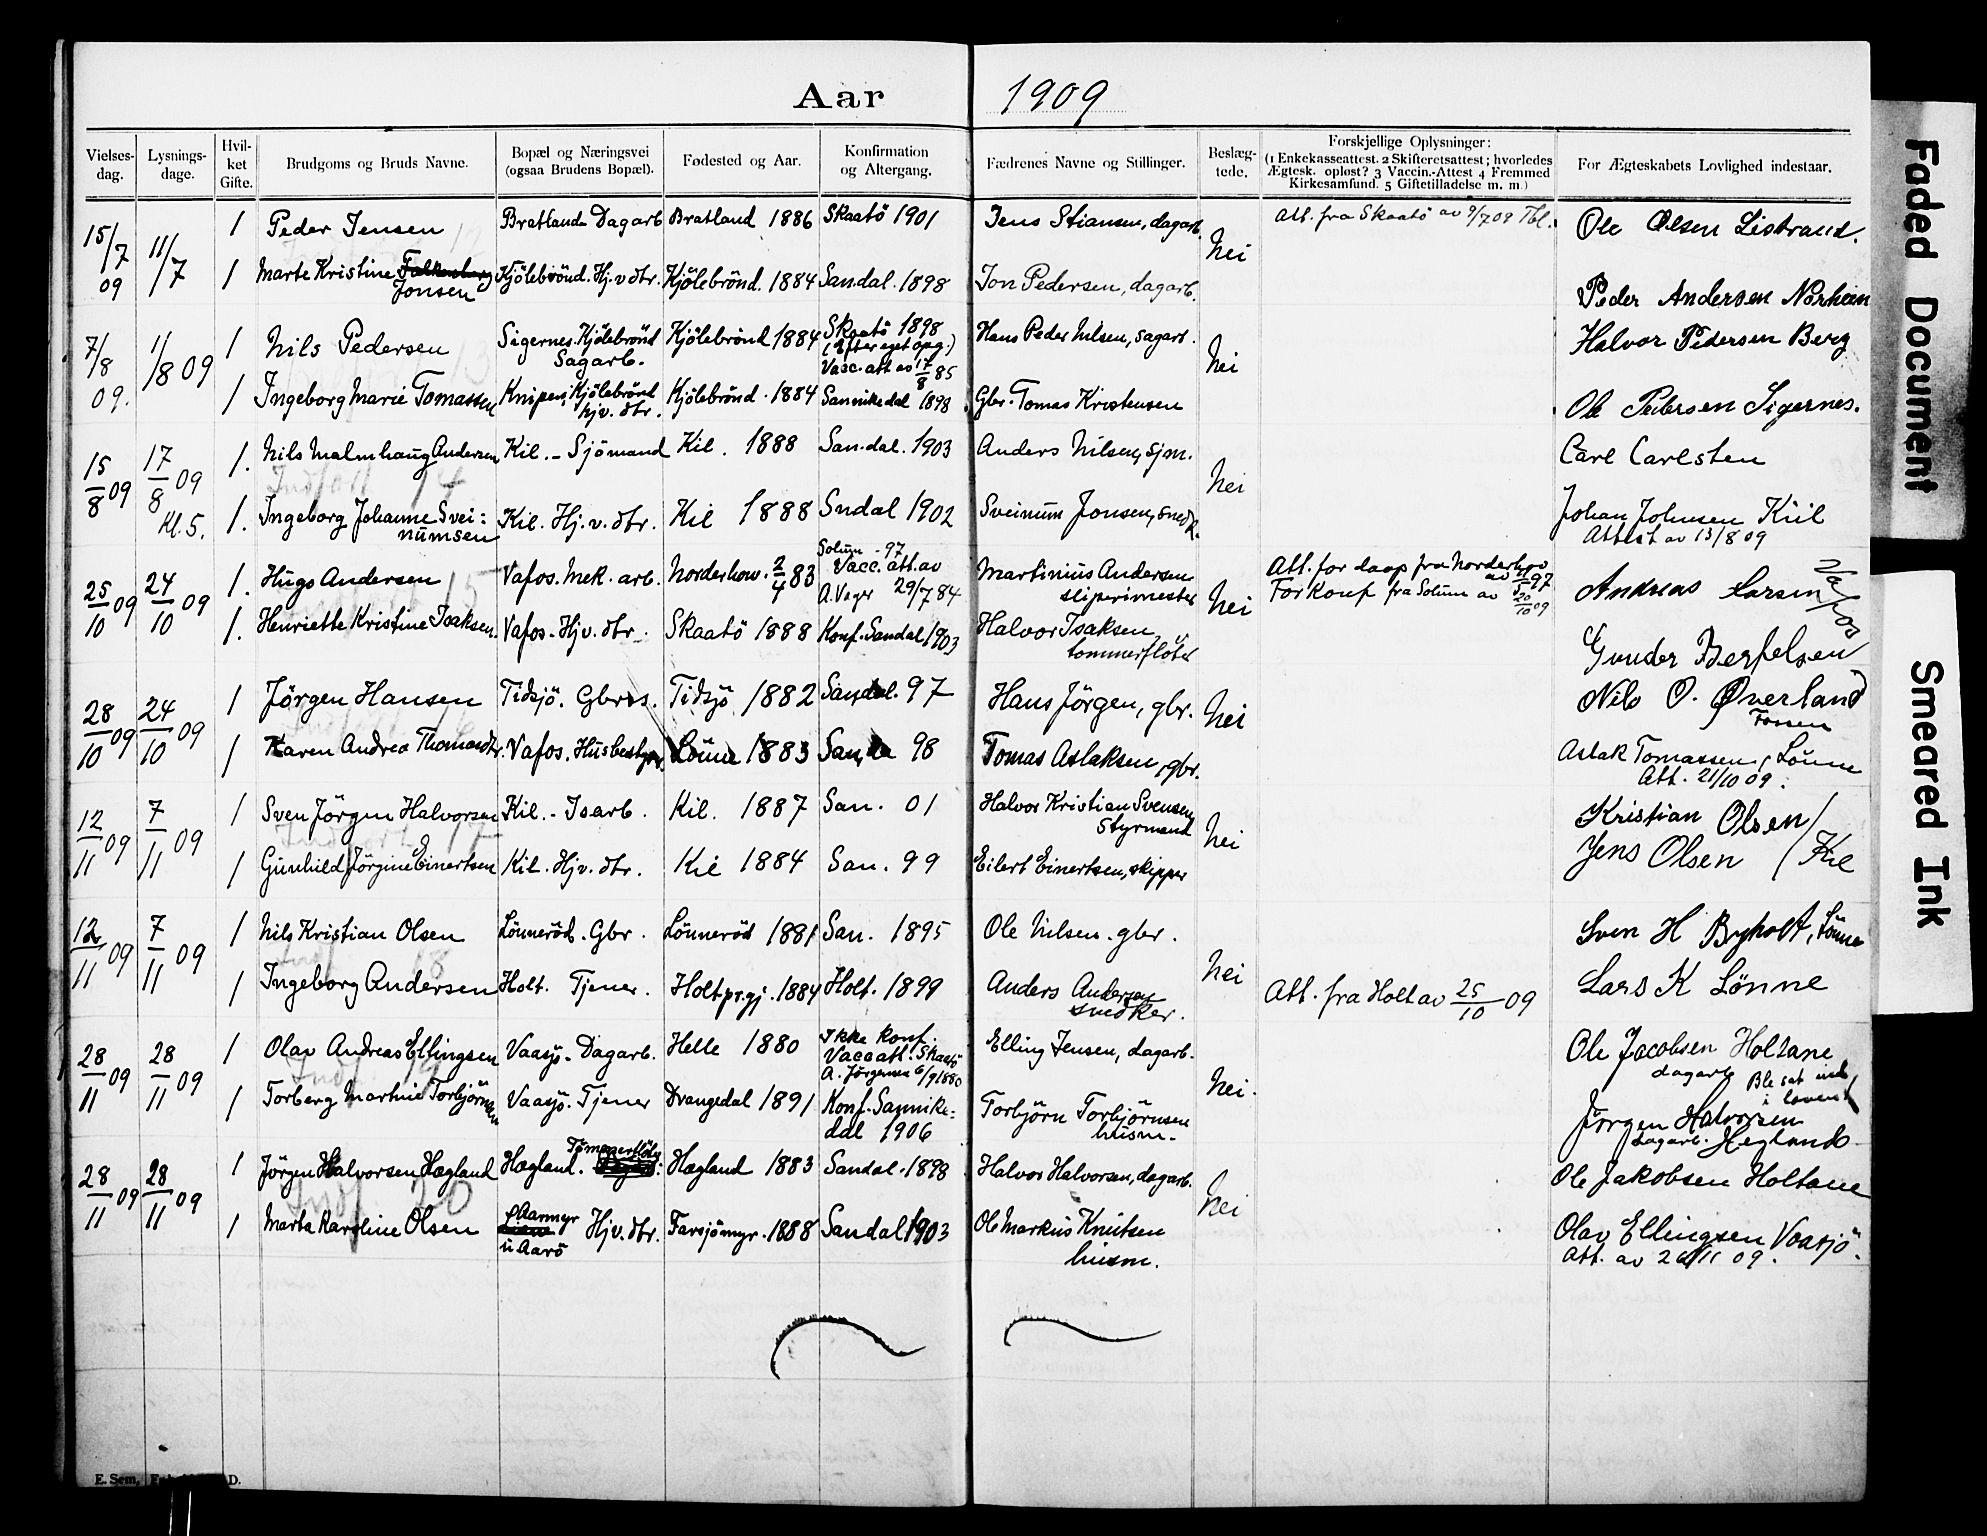 Aar 1909
Vielses-dag. Lysnings-dage. Hvil-ket Gifte. Brudgoms og Bruds Navne. Bopæl og Næringsvei (ogsaa Brudens Bopæl). Fødested og Aar. Konfirmation og Altergang. Fædrenes Navne og Stillinger. Beslæg-tede. Forskjellige Oplysninger: (1 Enkekasseattest. 2 Skifteretsattest; hvorledes Ægtesk. opløst? 3 Vaccin.-Attest 4 Fremmed Kirkesamfund. 5 Giftetilladelse m. m.) For Ægteskabets Lovlighed indestaar.
15/7 09 11/7 1 Peder Jensen Bratland Dagarb Bratland 1886 Skaatö 1901 Jens Stiansen, dagarb. Nei Att. fra Skaatö av 9/7 09 Tbl. Ole Olsen Listrand.
1 Marte Kristine Falkenberg Kjölebrönd. Hj.v dtr. Kjölebrönd. 1884 Sandal. 1898 Jon Pedersen, dagarb. Peder Andersen Norheim
Jonsen
7/8 09. 1/8 09 1 Nils Pedersen Sigernes. Kjölebrönd Kjölebrönd 1884 Skaatö 1898 Hans Peder Nilsen, sagarb. Nei Halvor Pedersen Berg
Sagarb. (Efter eget opg.)
Vacc. att. av 17/8 85
1 Ingeborg Marie Tomassen Knipen, Kjölebrönd Kjölebrönd. 1884 Sannikedal 1898 Gbr. Tomas Kristensen Ole Pedersen Sigernes.
hjv. dtr.
15/8 09 17/8 09 1. Nils Malmhaug Andersen Kil. - Sjömand Kil. 1888 San.dal. 1903 Anders Nilsen, sjm. Nei Carl Carlsten
Kl. 5. 1. Ingeborg Johanne Svei: Kil. Hj. v. dtr. Kil 1888 Sndal 1902 Sveinum Jonsen, snedk. Johan Johnsen Kiil
numsen Attest av 13/8 09
25/10 09 24/10 09 1. Hugo Andersen Vafos. Mek. arb. Norderhov. 2/4 83 Solum - 97 Martinius Andersen Nei Att. for daap fra Norderhov Andreas Larsen Vafos
Vacc. att. av sliperimester
A. Veger 29/7 84 For konf fra Solum av 20/10 09
1. Henriette Kristine Isaksen. Vafos. Hjv. dtr. Skaatö 1888 Konf. Sandal 1903 Halvor Isaksen, Gunder Berfelsen
tommerflöter
28/10 09 24/10 09 1 Jörgen Hansen Tidsjö. Gbrs. Tidsjö 1882 Sandal. 97 Hans Jörgen, gbr. Nei Nils O. Øverland
Fossen
1 Karen Andrea Thomasdtr. Vafos. Husbestyr. Lönne 1883 98 Tomas Aslaksen, gbr. Aslak Tomassen, Lönne
Att. 21/10 09.
12/11 09 7/11 09 1 Sven Jörgen Halvorsen Kil. - Isarb. Kil. 1887 San. 01 Halvor Kristian Svensen Nei Kristian Olsen
Styrmand
1 Gunhild Jörgine Einertsen Kil. Hjv. dtr. Kil 1884 San. 99 Eilert Einertsen, skipper Jens Olsen / Kil
12/11 09 7/11 09 1 Nils Kristian Olsen Lönneröd. Gbr. Lönneröd 1881 San. 1895 Ole Nilsen. gbr. Nei Sven H Bryholt, Lönne
1 Ingeborg Andersen Holt. Tjener. Holt pr.gj. 1884 Holt. 1899 Anders Andersen Att. fra Holt av 25/10 09 Lars K Lönne
snedker.
28/11 09 28/11 09 1 Olav Andreas Ellingsen Vaasjö. Dagarb. Helle 1880 Ikke konf. Elling Jensen, dagarb. Nei. Ole Jacobsen Holtane
Vacc att. Skaatö dagarb
A. Jörgensen 6/9 1880
1 Torberg Martine Torbjörnsen Vaasjö. Tjener Drangedal 1891 Konf. Sannike: Torbjörn Torbjörnsen Jørgen Halvorsen
dal 1906 husm. dagarb. Heglands
28/11 09 28/11 09 1 Jörgen Halvorsen Hægland Hægland. Tømmerflöder Hægland 1883 Sandal. 1898 Halvor Halvorsen, dagarb. Nei Ole Jakobsen Holtane
1 Marta Karoline Olsen Aarmyr Hjv. dtr. Farsjömyr. 1888 Sandal 1903 Ole Markus Knutsen Olav Ellingsen Vaasjö.
u Aarö husm. Att. av 26/11 09.
E. Sem, D.
Faded Document
Smeared Ink